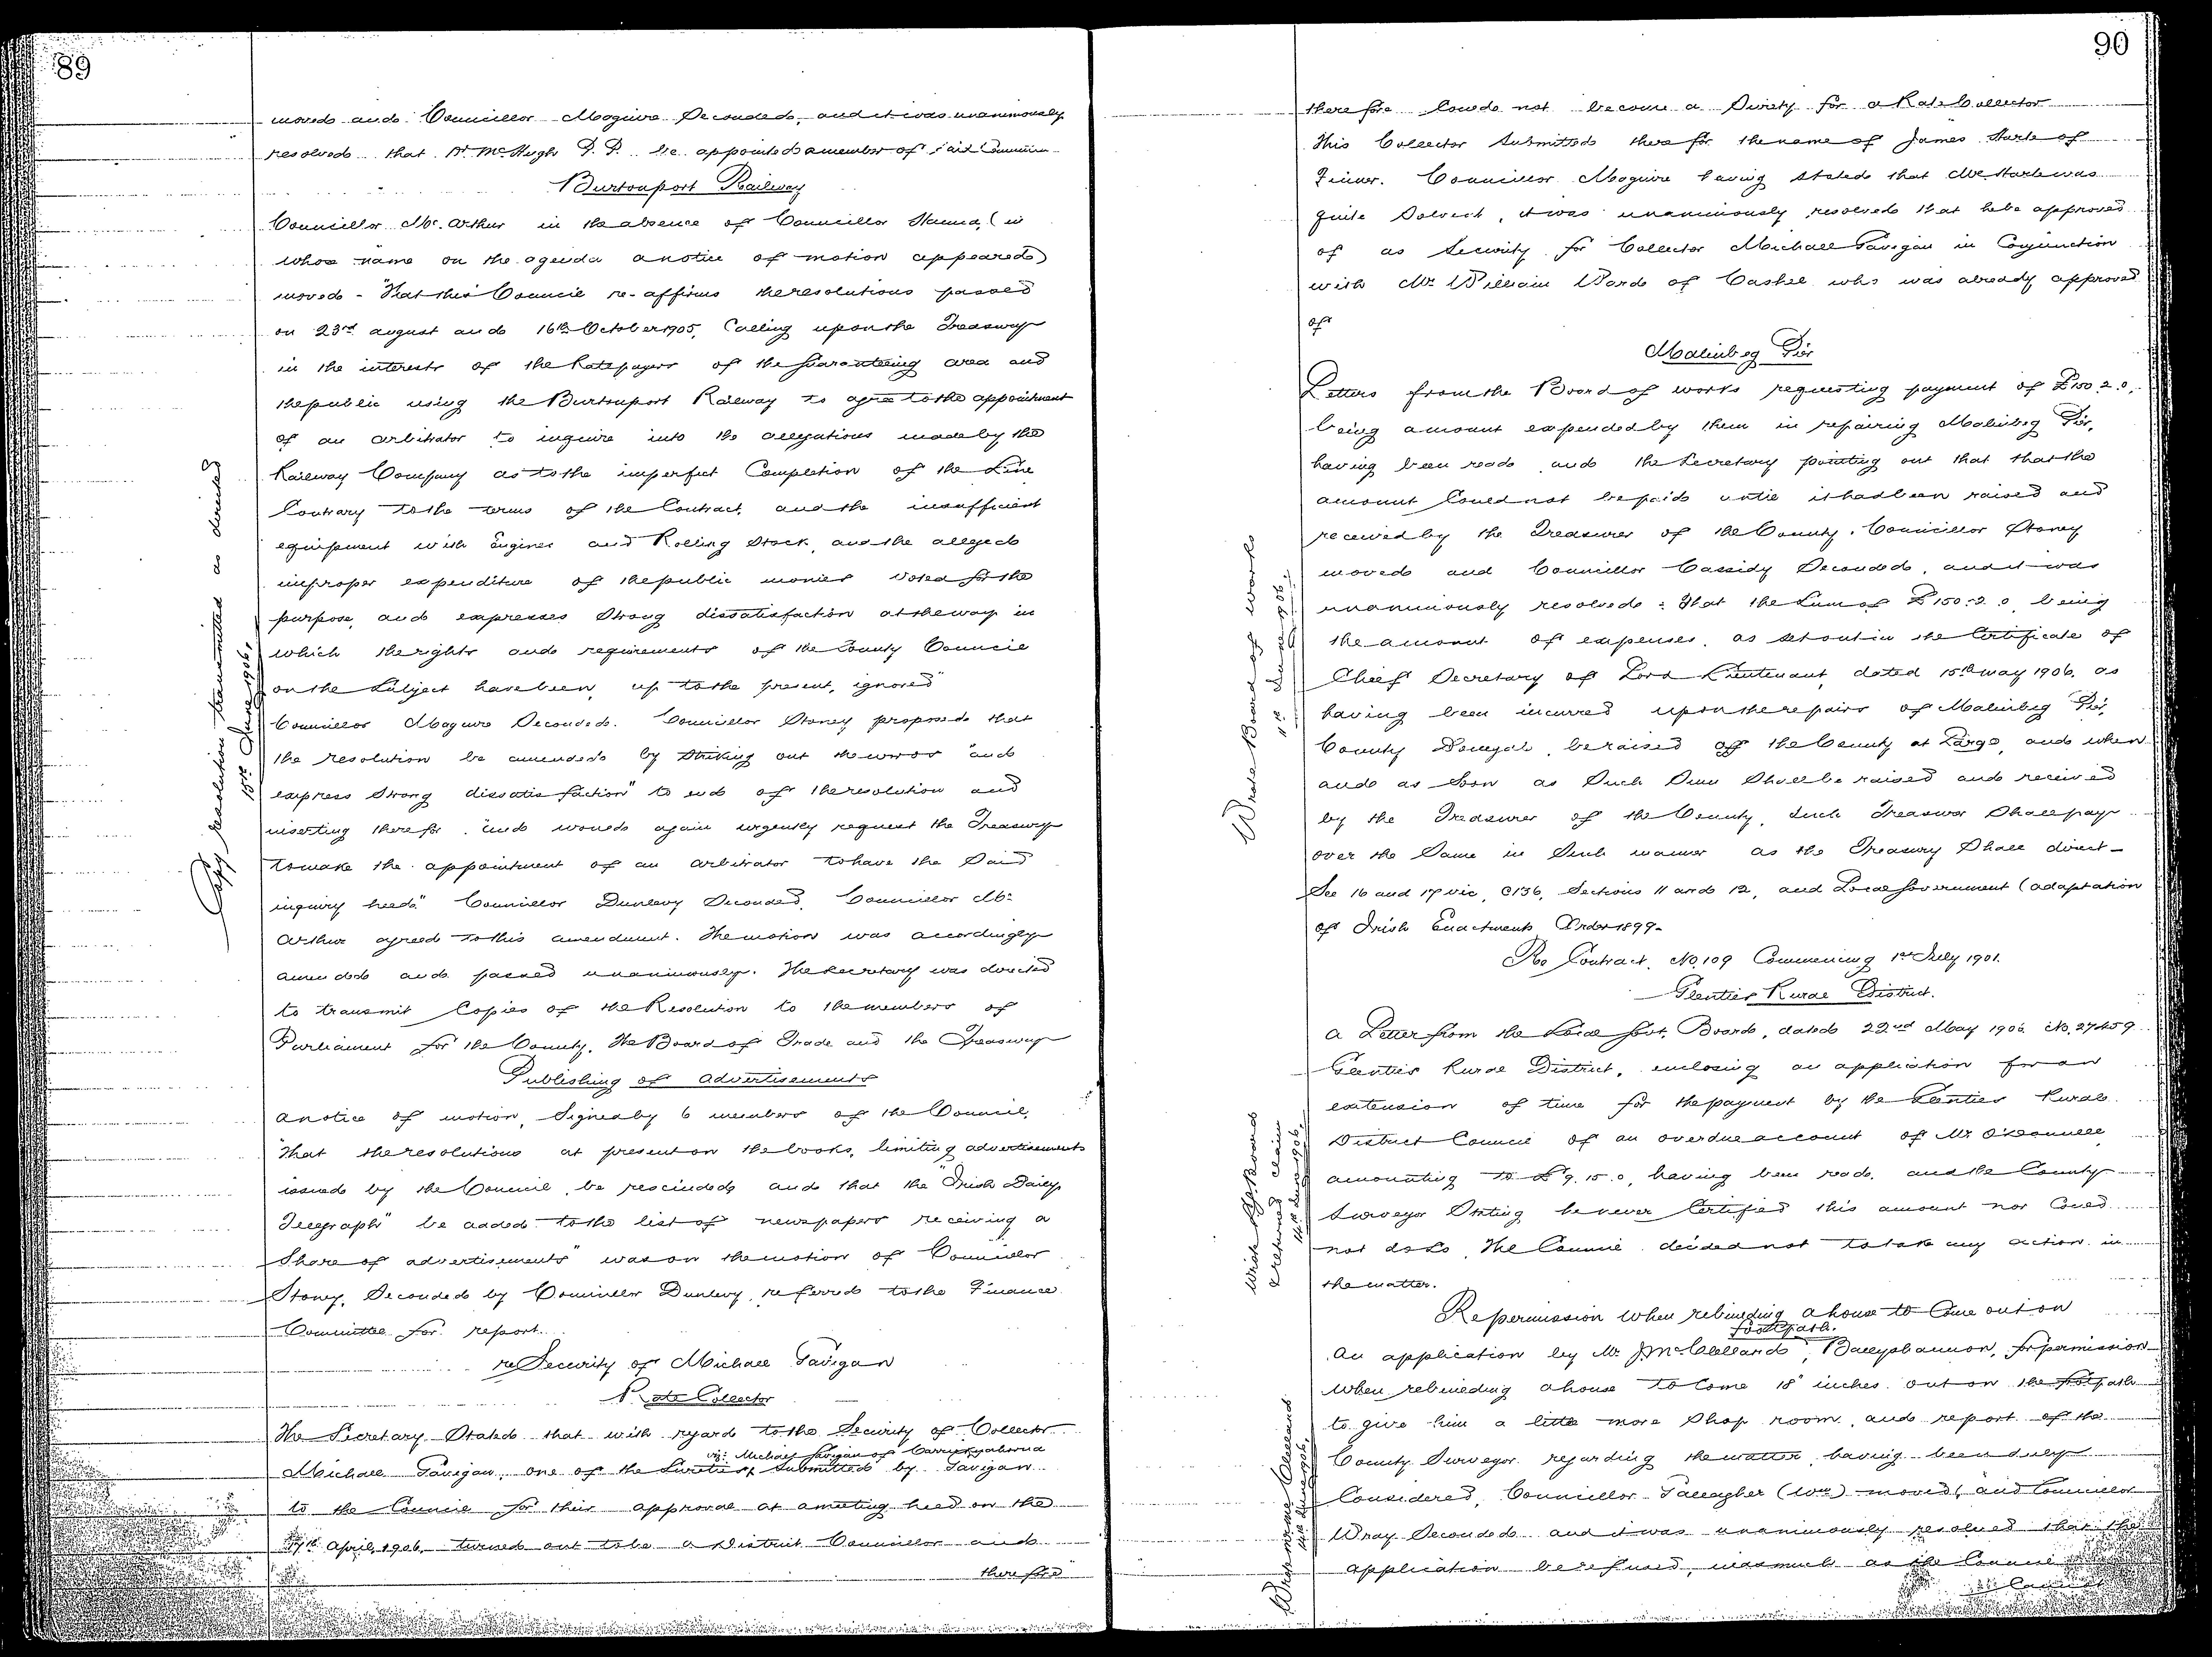 89
moved and Councillor Maguire Seconded, and it was unanimously
resolved that Dr McHugh P.P. be appointed a member of said Committee
Burtonport Railway
Councillor Mc.Arthur in the absence of Councillor Hanna, (in
whose name on the agenda a notice of motion appeared)
moved - "That this Council re-affirms the resolutions passed
on 23rd august and 16th October 1905, Calling upon the Treasury
in the interests of the Ratepayers of the Guaranteeing area and
the public using the Burtonport Railway to agree to the appointment
of an arbitrator to inquire into the allegations made by the
Railway Company as to the imperfect Completion of the Line
Contrary to the terms of the Contract, and the insufficient
equipment with Engines and Rolling Stock, and the alleged
improper expenditure of the public monies voted for the
purpose, and expresses Strong dissatisfaction at the way in
which the rights and requirements of the County Council
on the Subject have been, up to the present, ignored"
Councillor Maguire Seconded. Councillor Stoney proposed that
the resolution be amended by Striking out the words "and
express Strong dissatisfaction" to end of the resolution and
inserting therefor "and would again urgently request the Treasury
to make the appointment of an arbitrator to have the Said
inquiry held." Councillor Dunlevy Seconded, Councillor Mc.
Arthur agreed to this amendment. The motion was accordingly
amended and passed unanimously. The Secretary was directed
to transmit Copies of the Resolution to the members of
Parliament for the County, The Board of Trade and the Treasury
Copy resolution transmitted as directed
15th June 1906,
Publishing of advertisements
a notice of motion, Signed by 6 members of the Council,
"That the resolutions at present on the books, limiting advertisements
issued by the Council, be rescinded, and that the "Irish Daily
Telegraph" be added to the list of newspapers receiving a
Share of advertisements" was on the motion of Councillor
Stoney, Seconded by Councillor Dunlevy, referred to the Finance
Committee for report.
re Security of Michael Gavigan
Rate Collector
The Secretary Stated that with regard to the Security of Collector
viz: Michael Gavigan of
Michael Gavigan, one of the Sureties, Submitted by Gavigan
to the Council for their approval at a meeting held on the
17th April, 1906, turned out to be a District Councillor and
therefore
90
therefore Could not become a Surety for a Rate Collector
This Collector Submitted therefor the name of James Harte of
Finner. Councillor Maguire having stated that Mr. Harte was
quite Solvent, it was unanimously resolved that he be approved
of as Security for Collector Michael Gavigan in Conjunction
with Mr. William Ward of Cashel who was already approved
of
Malinbeg Pier
Letters from the Board of works requesting payment of £150.2.0,
being amount expended by them in repairing Malinbeg Pier,
having been read and the Secretary pointing out that that the
amount Could not be paid until it had been raised and
received by the Treasurer of the County. Councillor Stoney
moved and Councillor Cassidy Seconded, and it was
unanimously resolved: That the Sum of £150.2.0, being
the amount of expenses, as set out in the Certificate of
Chief Secretary of Lord Lieutenant, dated 15th May 1906, as
having been incurred upon the repairs of Malinbeg Pier,
County Donegal, be raised off the County at Large, and when
and as Soon as Such Sum Shall be raised and received
by the Treasurer of the County, Such Treasurer Shall pay
over the Same in Such manner as the Treasury Shall direct -
See 16 and 17 vic, C136, Sections 11 and 12, and Local Government (adaptation
of Irish Enactments) Order 1899.
Wrote Board of works
11th June 1906.
Re Contract. No. 109 Commencing 1st July 1901.
Glenties Rural District.
a Letter from the Local Govt. Board, dated 22nd May 1906 No. 27459
Glenties Rural District, enclosing an application for an
extension of time for the payment by the Glenties Rural
District Council of an overdue account of Mr. O'Donnell
amounting to £9.15.0, having been read, and the County
Surveyor Stating he never Certified this amount nor Could
not do so, The Council decided not to take any action in
the matter.
Wrote L.G. Board
& returned claim
14th June 1906,
Re permission when rebuilding a house to Come out on
footpath.
An application by Mr. J. McClelland, Ballyshannon, for permission
when rebuilding a house to Come 18 inches out on the footpath
to give him a little more Shop room, and report of the
County Surveyor regarding the matter having been duly
Considered, Councillor Gallagher (Wm) moved, and Councillor
Wray Seconded and it was unanimously resolved that the
application be refused, inasmuch as the Council
Wrote Mr McClelland
14th June 1906,